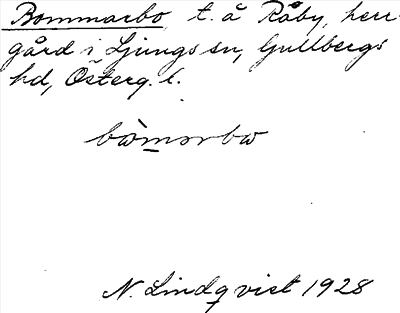 Bommarbo t. å Råby, herr-
gård i Ljungs sn, Gullbergs
hd, Österg. l.
bòmərbω
N. Lindqvist 1928